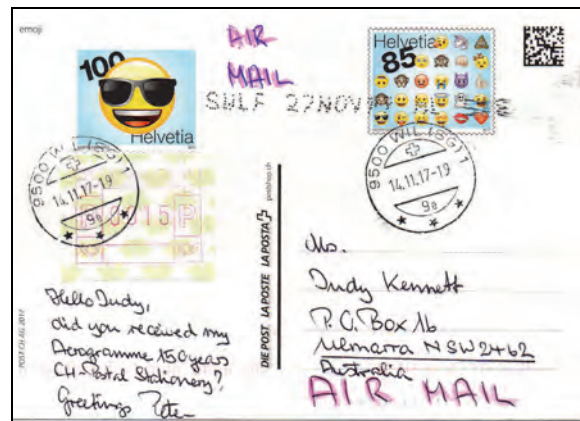 emoji
100
Helvetia
AIR
MAIL
Helvetia
85
SWLF 27NOV
9500 WIL (SG) 1
14.11.17-19
9a
9500 WIL (SG) 1
14.11.17-19
9a
P 0015 P
postshop.ch
DIE POST LA POSTE LA POSTA
POST CH AG 2017
Hello Judy,
did you received my
Aerogramme 150 years
CH-Postal Stationery?
Greetings Peter
Ms.
Judy Kennett
P.O. Box 16
NSW 2462
Australia
AIR MAIL